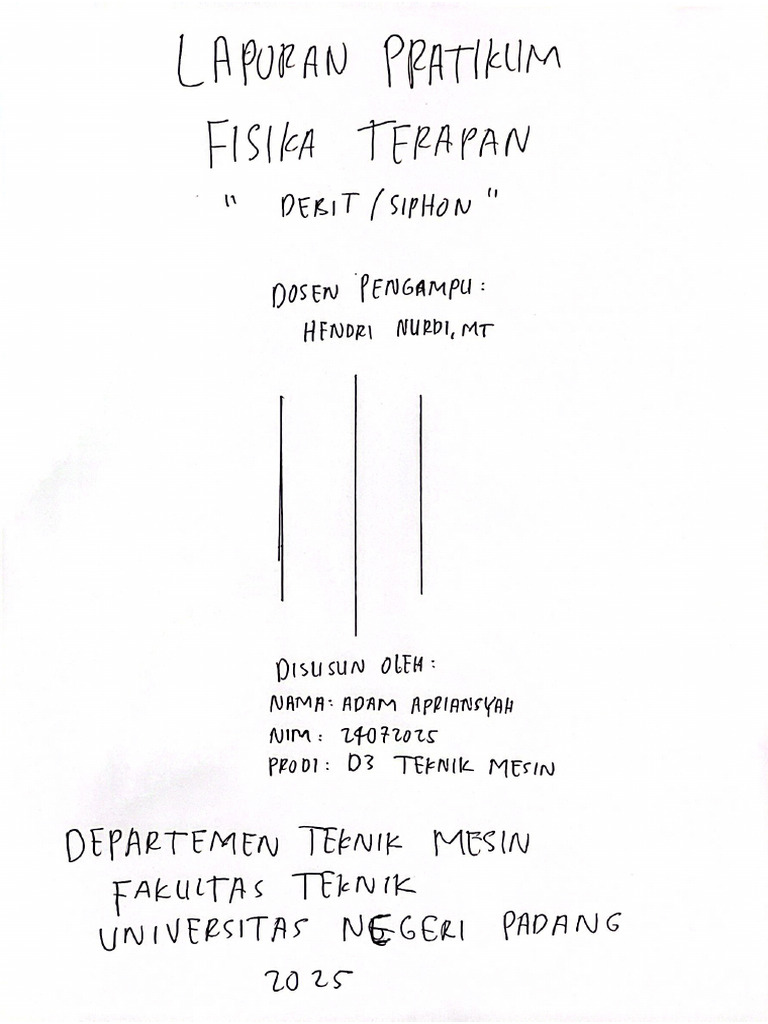 LAPURAN PRATIKUM
FISIKA TERAPAN
" DEBIT / SIPHON "
DOSEN PENGAMPU :
HENDRI NURDI, MT
DISUSUN OLEH :
NAMA : ADAM APRIANSYAH
NIM : 24072025
PRODI : D3 TEKNIK MESIN
DEPARTEMEN TEKNIK MESIN
FAKULTAS TEKNIK
UNIVERSITAS NEGERI PADANG
2025